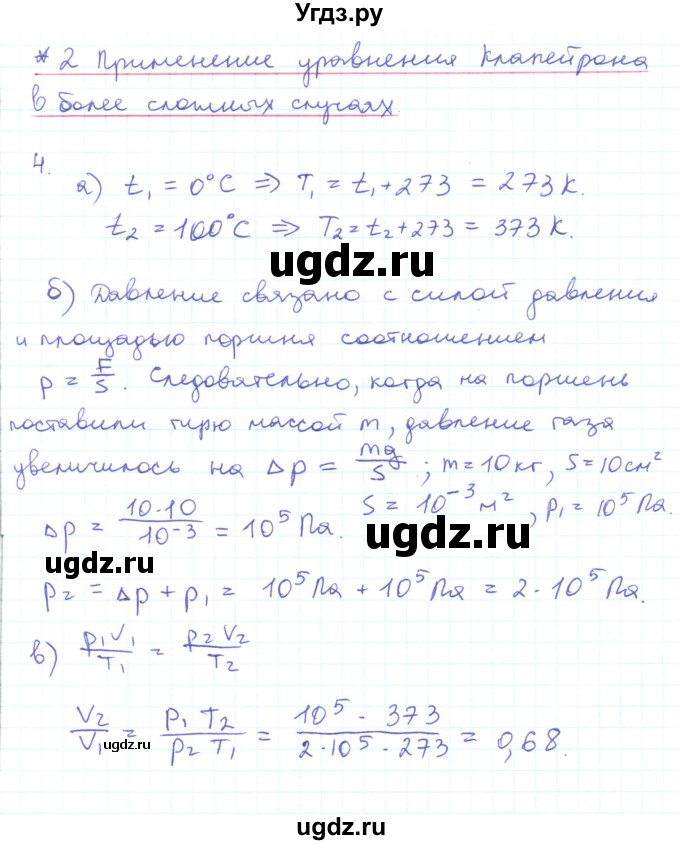 Угдз.ру
* 2 Применение уравнения Клапейрона
в более сложных случаях.
4.
а) t₁ = 0°C ⇒ T₁ = t₁ + 273 = 273 K.
t₂ = 100°C ⇒ T₂ = t₂ + 273 = 373 K.
ugdz.ru
б) Давление связано с силой давления
и площадью поршня соотношением
p = F/S. Следовательно, когда на поршень
поставили гирю массой m, давление газа
увеличилось на Δp = mg/S; m = 10 кг, S = 10 см²
S = 10⁻³ м², p₁ = 10⁵ Па.
Δp = 10·10/10⁻³ = 10⁵ Па.
ugdz.ru
ugdz.ru
p₂ = Δp + p₁ = 10⁵ Па + 10⁵ Па = 2·10⁵ Па.
в) p₁V₁/T₁ = p₂V₂/T₂
V₂/V₁ = p₁T₂/p₂T₁ = 10⁵·373/2·10⁵·273 = 0,68.
ugdz.ru
ugdz.ru